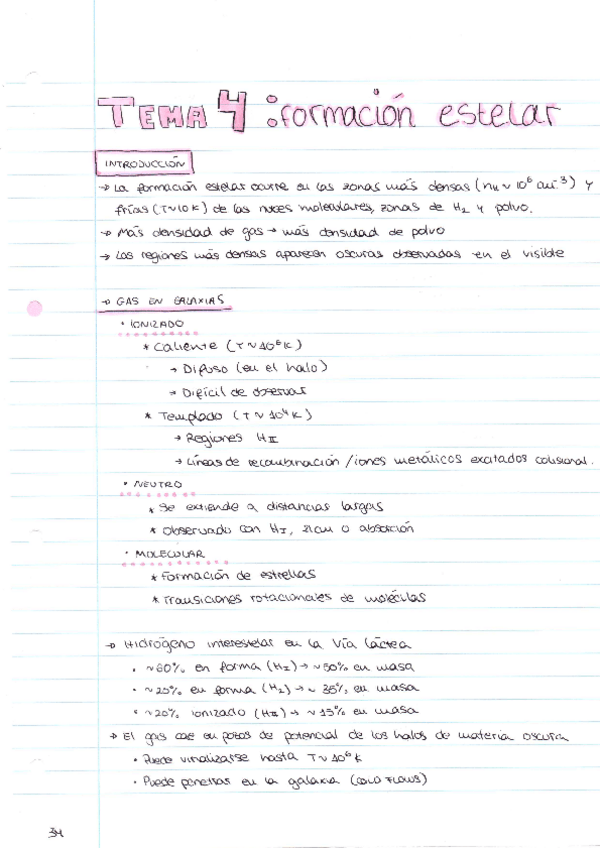 TEMA 4: formación estelar
INTRODUCCIÓN
→ La formación estelar ocurre en las zonas más densas (nH ~ 10⁶ cm⁻³) y
frías (T~10K) de las nubes moleculares, zonas de H₂ y polvo.
→ Más densidad de gas → más densidad de polvo
→ Las regiones más densas aparecen oscuras observadas en el visible
→ GAS EN GALAXIAS
· IONIZADO
* Caliente (T~10⁶K)
→ Difuso (en el halo)
→ Difícil de observar
* Templado (T~10⁴K)
→ Regiones HII
→ Líneas de recombinación / iones metálicos excitados colisional.
· NEUTRO
* Se extiende a distancias largas
* Observado con HI, 21cm o absorción
· MOLECULAR
* Formación de estrellas
* Transiciones rotacionales de moléculas
→ Hidrógeno interestelar en la Vía Láctea
· ~60% en forma (HI) → ~50% en masa
· ~20% en forma (H₂) → ~ 35% en masa
· ~20% ionizado (HII) → ~15% en masa
→ El gas cae en pozos de potencial de los halos de materia oscura
· Puede virializarse hasta T~10⁶K
· Puede penetrar en la galaxia (COLD FLOWS)
34